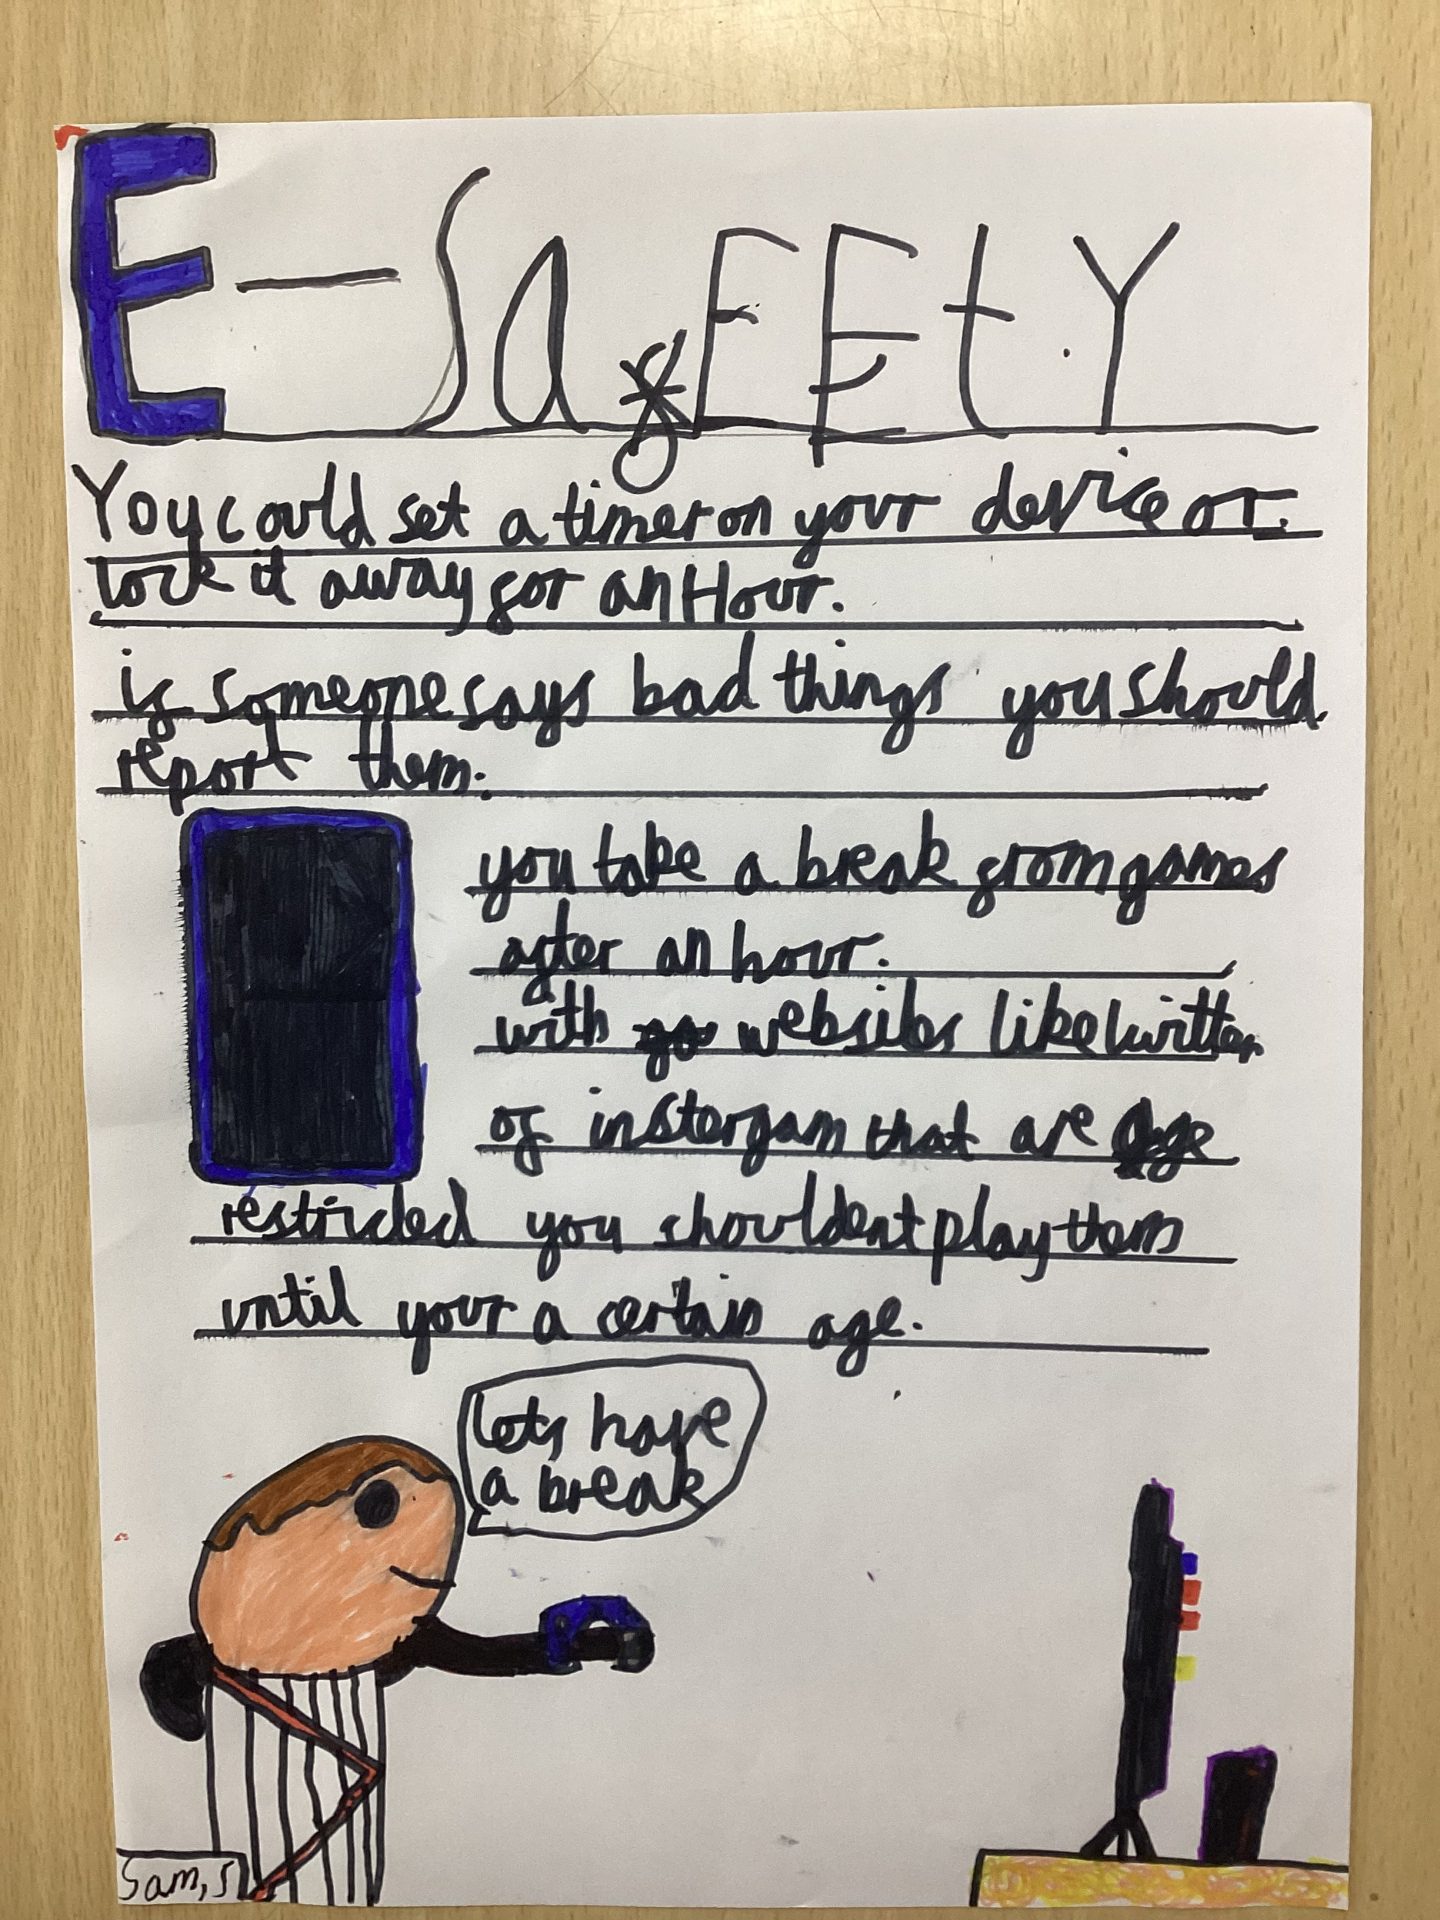 E-SaFEtY
You could set a timer on your device or
lock it away for an Hour.
if someone says bad things you should
report them.
you take a break from games
after an hour.
with websites like twitter
of instergam that are age
restricted you shouldent play them
until your a certain age.
lets have
a break
Sam, S